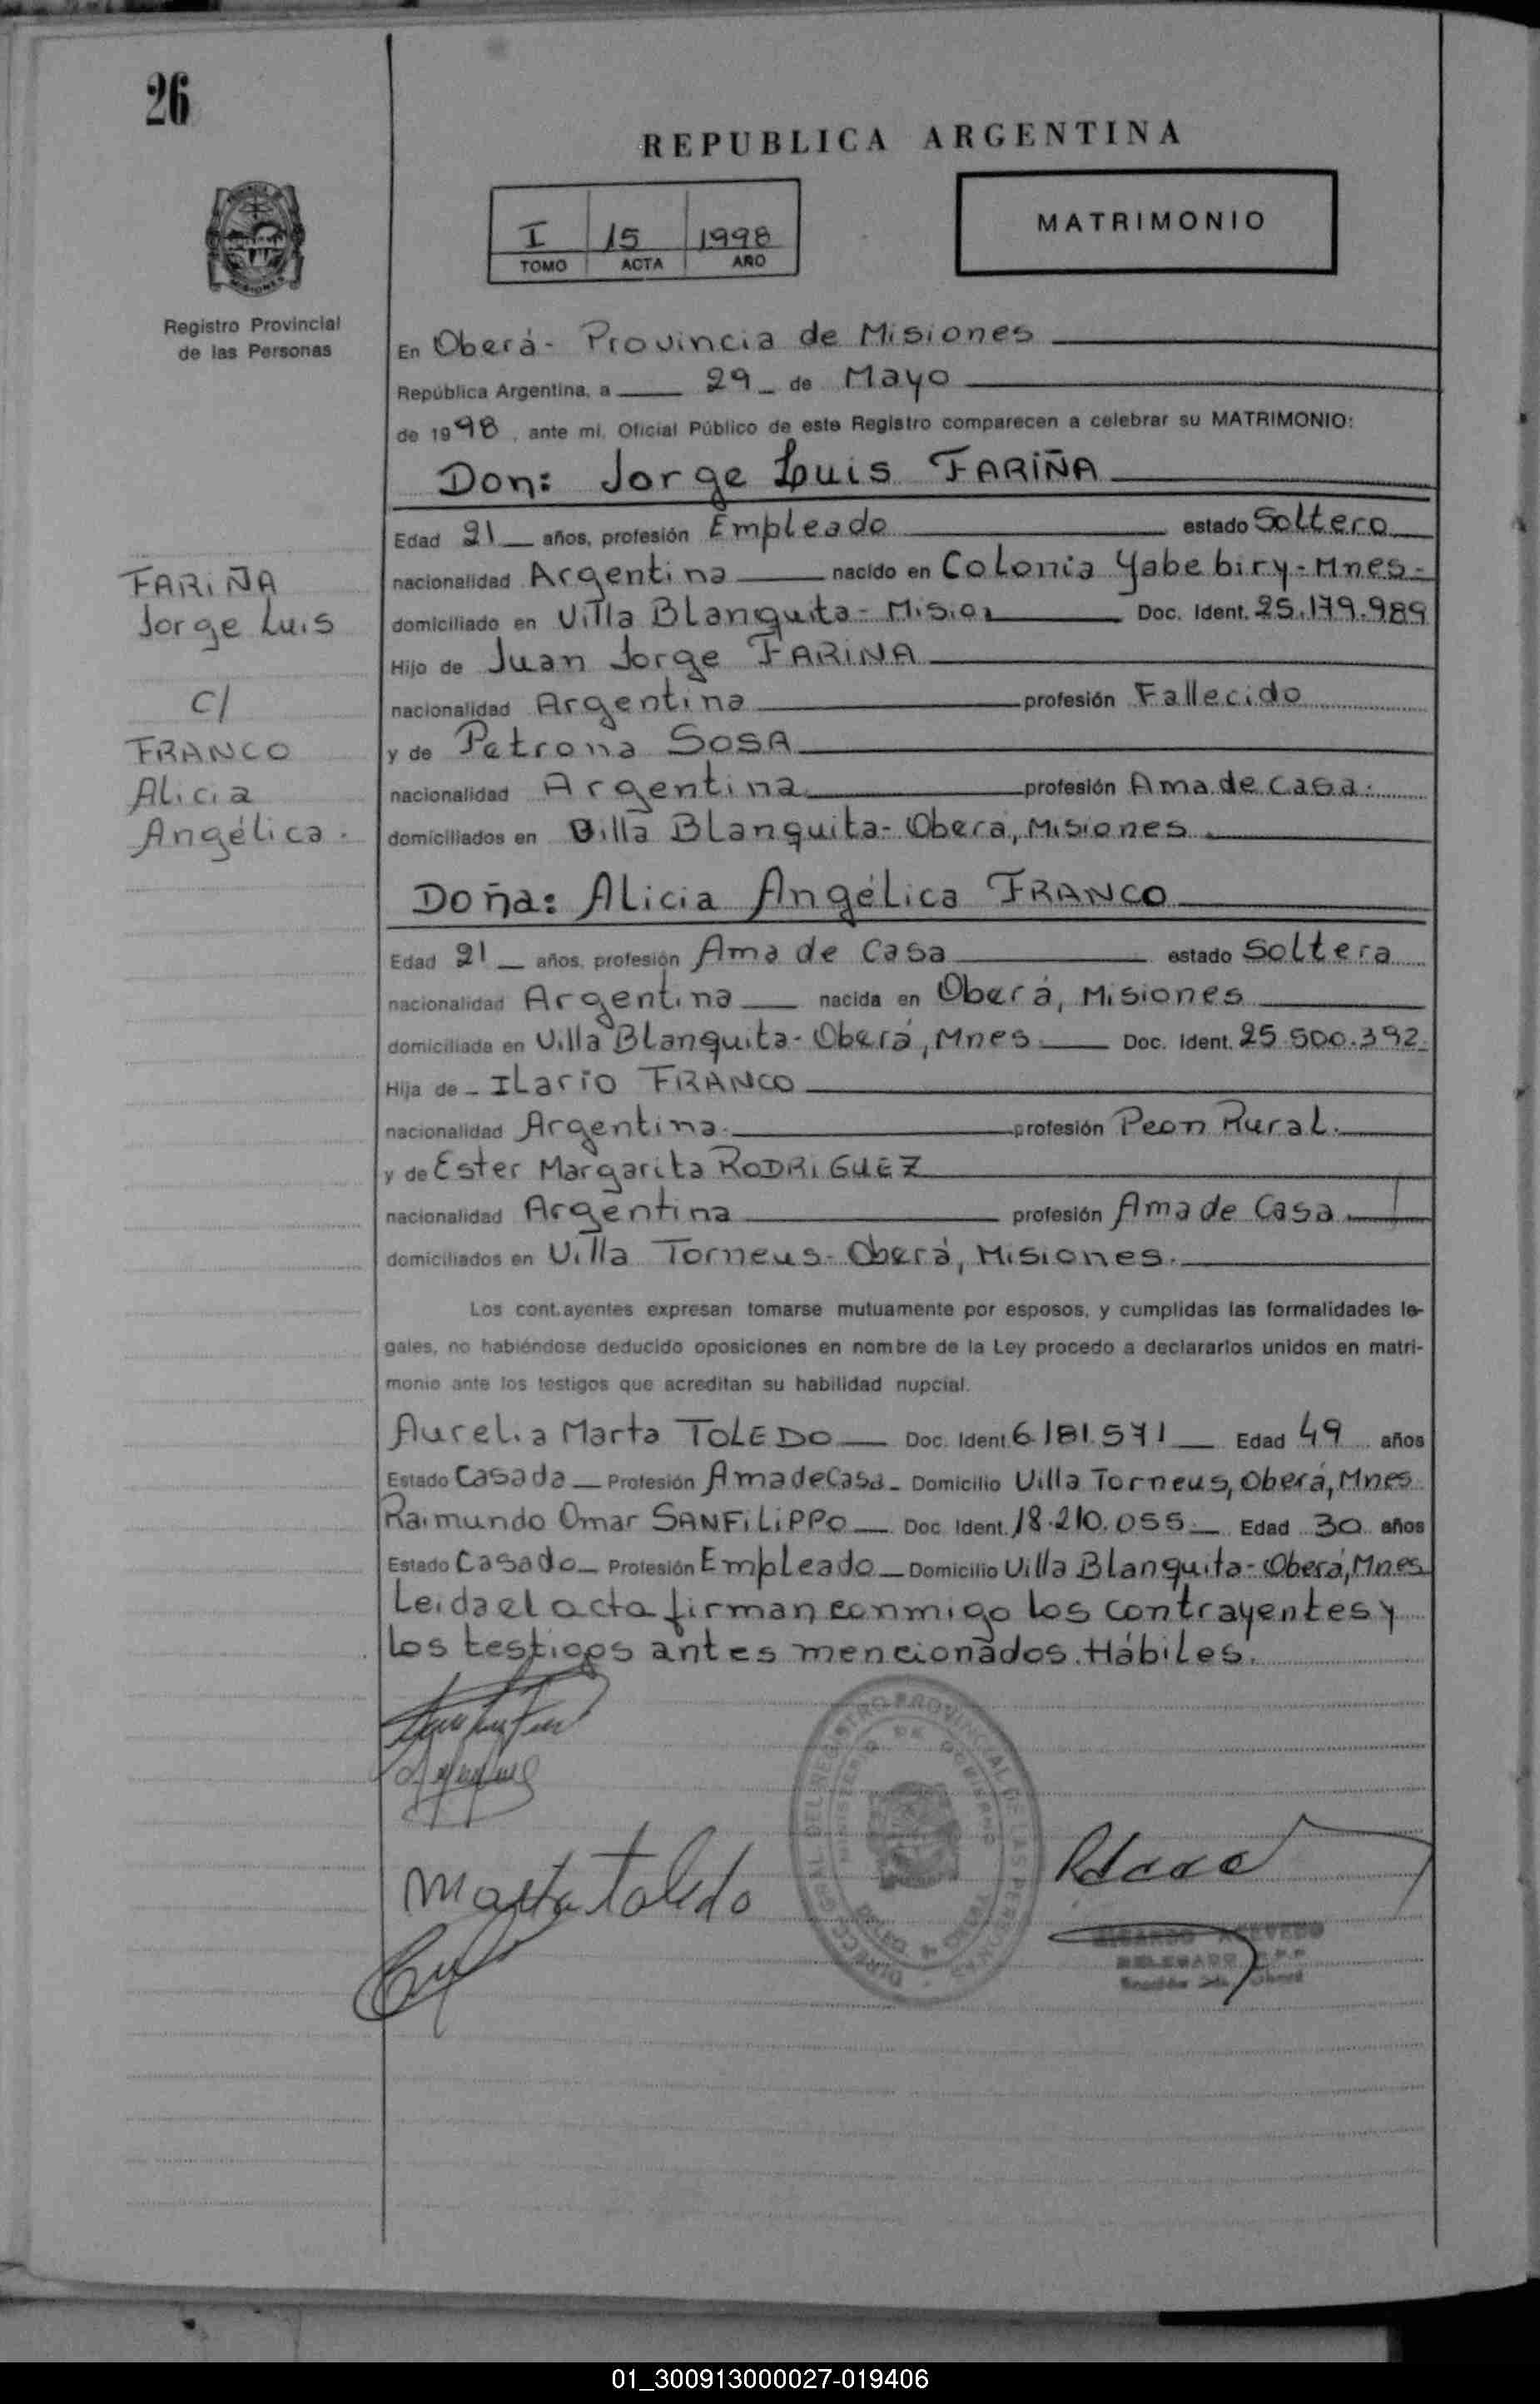 26
REPUBLICA ARGENTINA
I 15 1998
TOMO ACTA AÑO
MATRIMONIO
Registro Provincial
de las Personas
En Oberá- Provincia de Misiones
República Argentina, a 29 de Mayo
de 1998, ante mí, Oficial Público de este Registro comparecen a celebrar su MATRIMONIO:
Don: Jorge Luis FARIÑA
Edad 21 años, profesión Empleado estado Soltero
nacionalidad Argentina nacido en Colonia Yabebiry-Mnes-
domiciliado en Villa Blanquita- Doc. Ident. 25.179.989
Hijo de Juan Jorge FARINA
nacionalidad Argentina profesión Fallecido
y de Petrona SOSA
nacionalidad Argentina profesión Ama de casa.
domiciliados en Villa Blanquita- Obera, Misiones
FARIÑA
Jorge Luis
C/
FRANCO
Alicia
Angélica.
Doña: Alicia Angélica FRANCO
Edad 21 años, profesión Ama de Casa estado Soltera
nacionalidad Argentina nacida en Oberá, Misiones
domiciliada en Villa Blanquita- Oberá, Mnes Doc. Ident. 25.500.392.
Hija de - ILario FRANCO
nacionalidad Argentina. profesión Peon Rural.
y de Ester Margarita RODRIGUEZ
nacionalidad Argentina profesión Ama de Casa
domiciliados en Villa Torneus- Oberá, Misiones.
Los cont.ayentes expresan tomarse mutuamente por esposos, y cumplidas las formalidades le-
gales, no habiéndose deducido oposiciones en nombre de la Ley procedo a declararlos unidos en matri-
monio ante los testigos que acreditan su habilidad nupcial.
Aurelia Marta TOLEDO Doc. Ident. 6.181.571 Edad 49 años
Estado Casada Profesión Ama de Casa Domicilio Villa Torneus, Oberá, Mnes
Raimundo Omar SANFILIPPO Doc. Ident. 18.210.055 Edad 30 años
Estado Casado Profesión Empleado Domicilio Villa Blanquita- Oberá, Mnes
Leida el acta firman conmigo los contrayentes y
los testigos antes mencionados. Hábiles.
Marta Toledo
DIRECC GRAL DEL REGISTRO PROVINCIAL DE LAS PERSONAS
MINISTERIO DE GOBIERNO
ACEVEDO
DELEGADO
01_300913000027-019406